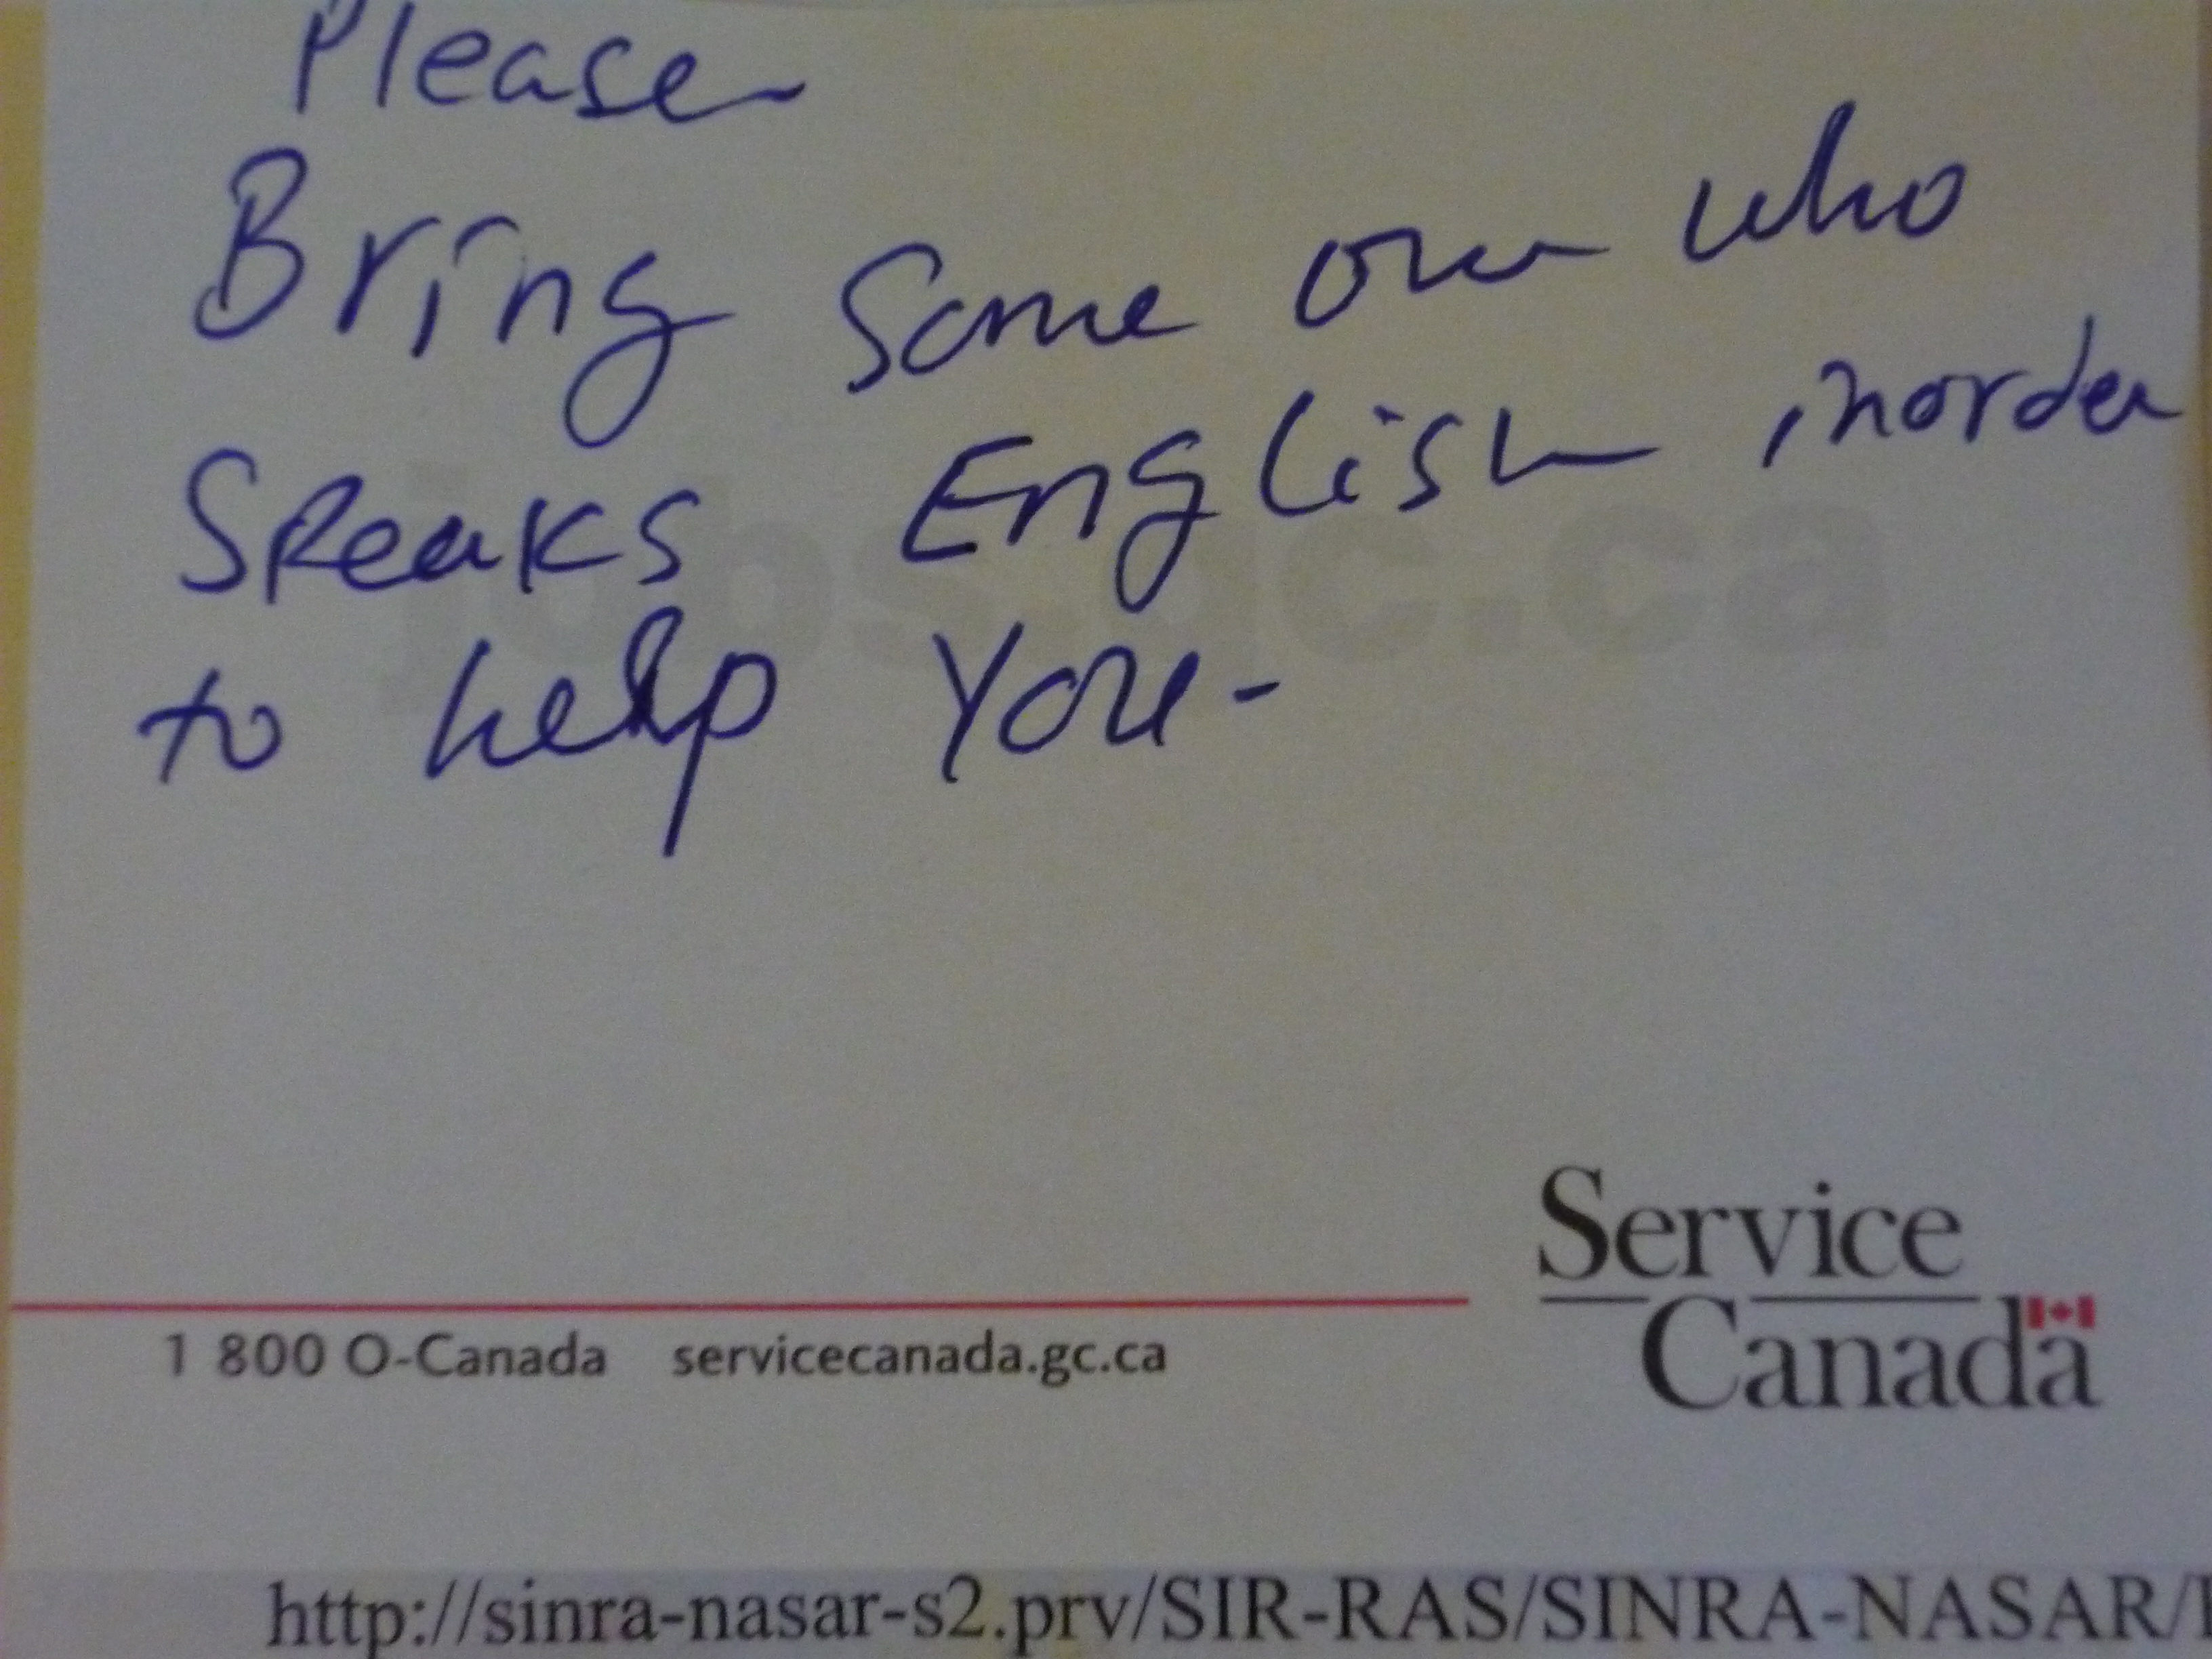 Please
Bring Some one who
Speaks English inorder
to help You-
jobs.gc.ca
Service
Canada
1 800 O-Canada servicecanada.gc.ca
http://sinra-nasar-s2.prv/SIR-RAS/SINRA-NASAR/